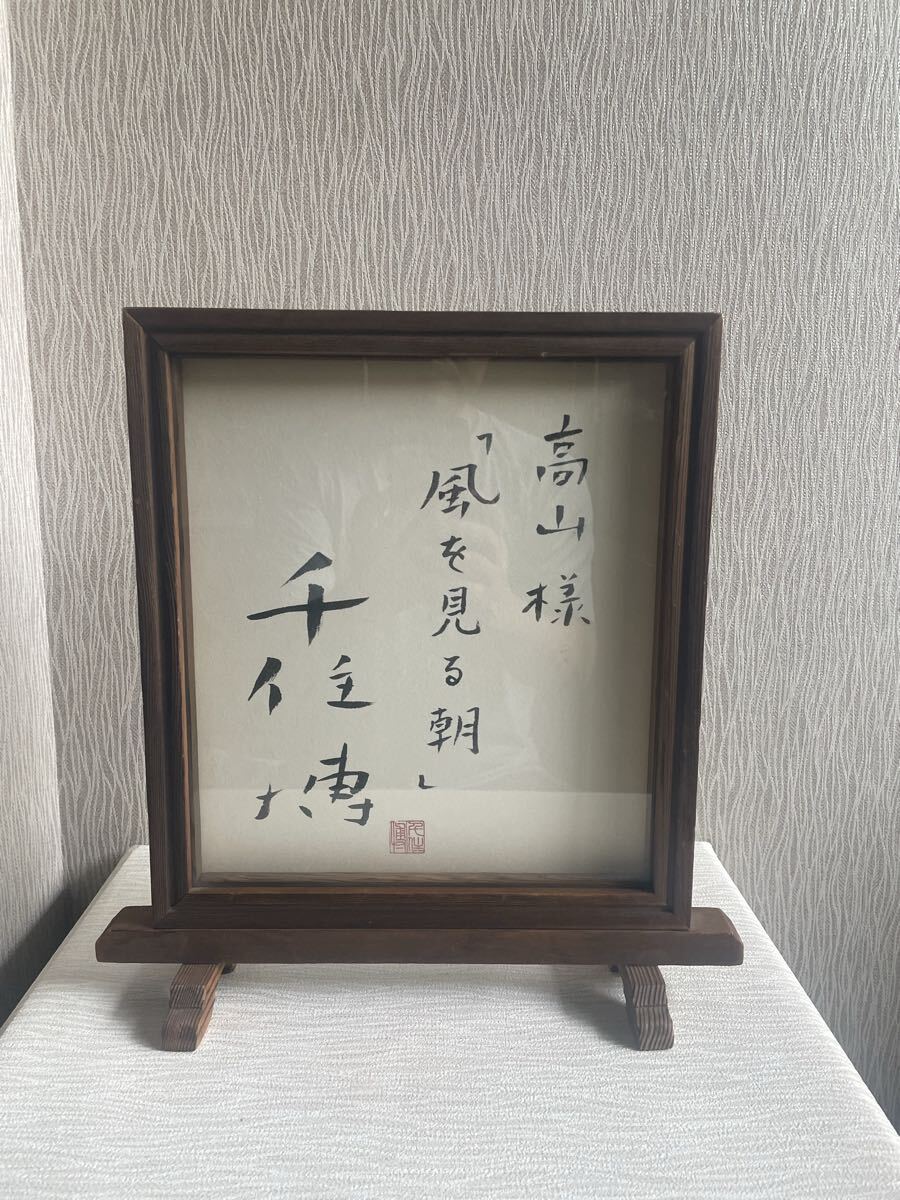 高山様
「風を見る朝」
千住博